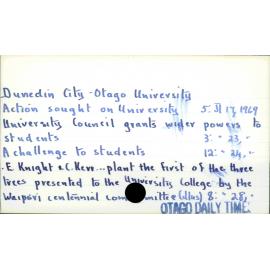 Dunedin City - Otago University
Action sought on University 5. II 17, 1969
University Council grants wider powers to
students 3: " 23, "
A challenge to students 12: " 24, "
E. Knight & C. Kerr ... plant the first of the three
trees presented to the University College by the
Waipori centennial committee (illus) 8: " 28, "
OTAGO DAILY TIMES